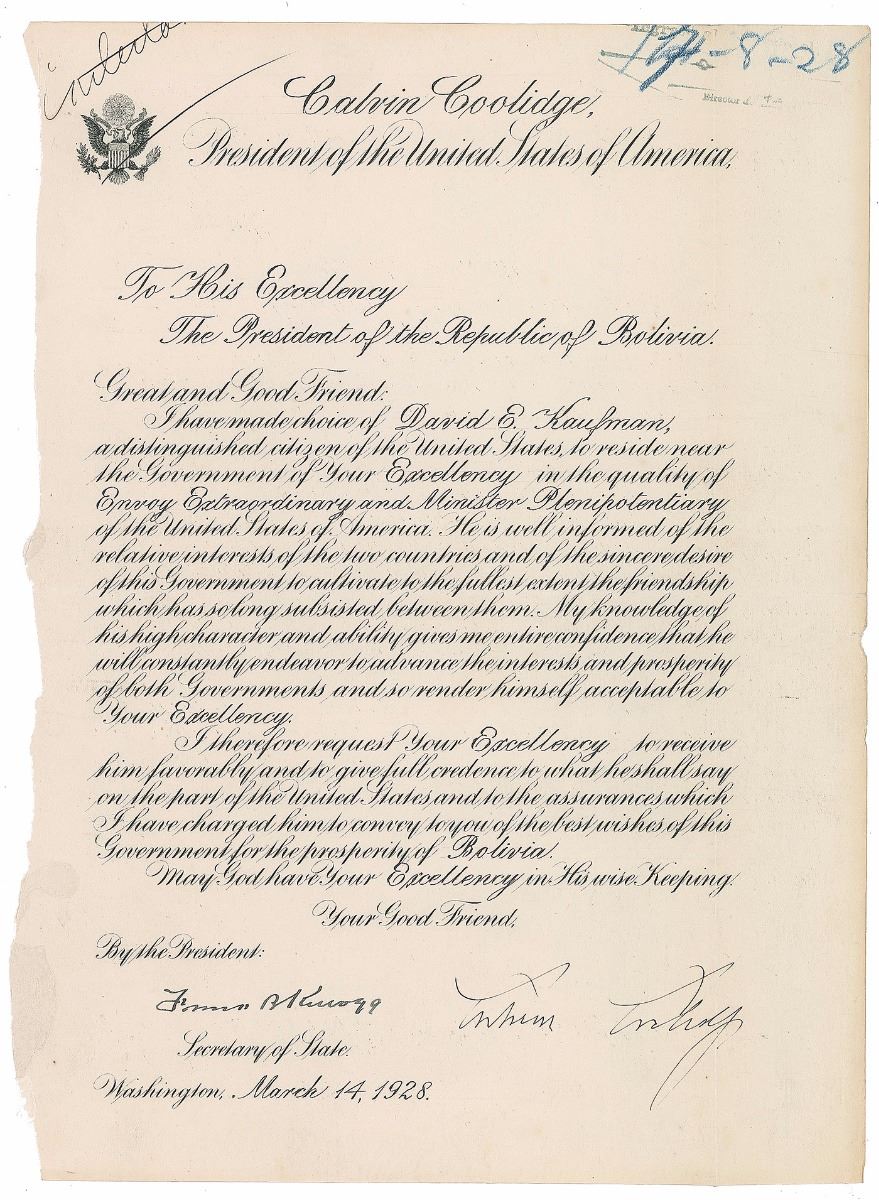 Calvin Coolidge,
President of the United States of America,
To His Excellency
The President of the Republic of Bolivia.
Great and Good Friend:
I have made choice of David E. Kaufman,
a distinguished citizen of the United States, to reside near
the Government of Your Excellency in the quality of
Envoy Extraordinary and Minister Plenipotentiary
of the United States of America. He is well informed of the
relative interests of the two countries and of the sincere desire
of this Government to cultivate to the fullest extent the friendship
which has so long subsisted between them. My knowledge of
his high character and ability gives me entire confidence that he
will constantly endeavor to advance the interests and prosperity
of both Governments and so render himself acceptable to
Your Excellency.
I therefore request Your Excellency to receive
him favorably and to give full credence to what he shall say
on the part of the United States and to the assurances which
I have charged him to convey to you of the best wishes of this
Government for the prosperity of Bolivia.
May God have Your Excellency in His wise Keeping.
Your Good Friend,
By the President:
Frank B Kellogg
Calvin Coolidge
Secretary of State.
Washington, March 14, 1928.